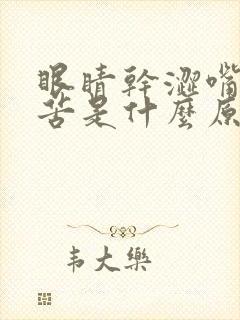 眼睛幹澀嘴
苦是什麼原
韦大樂